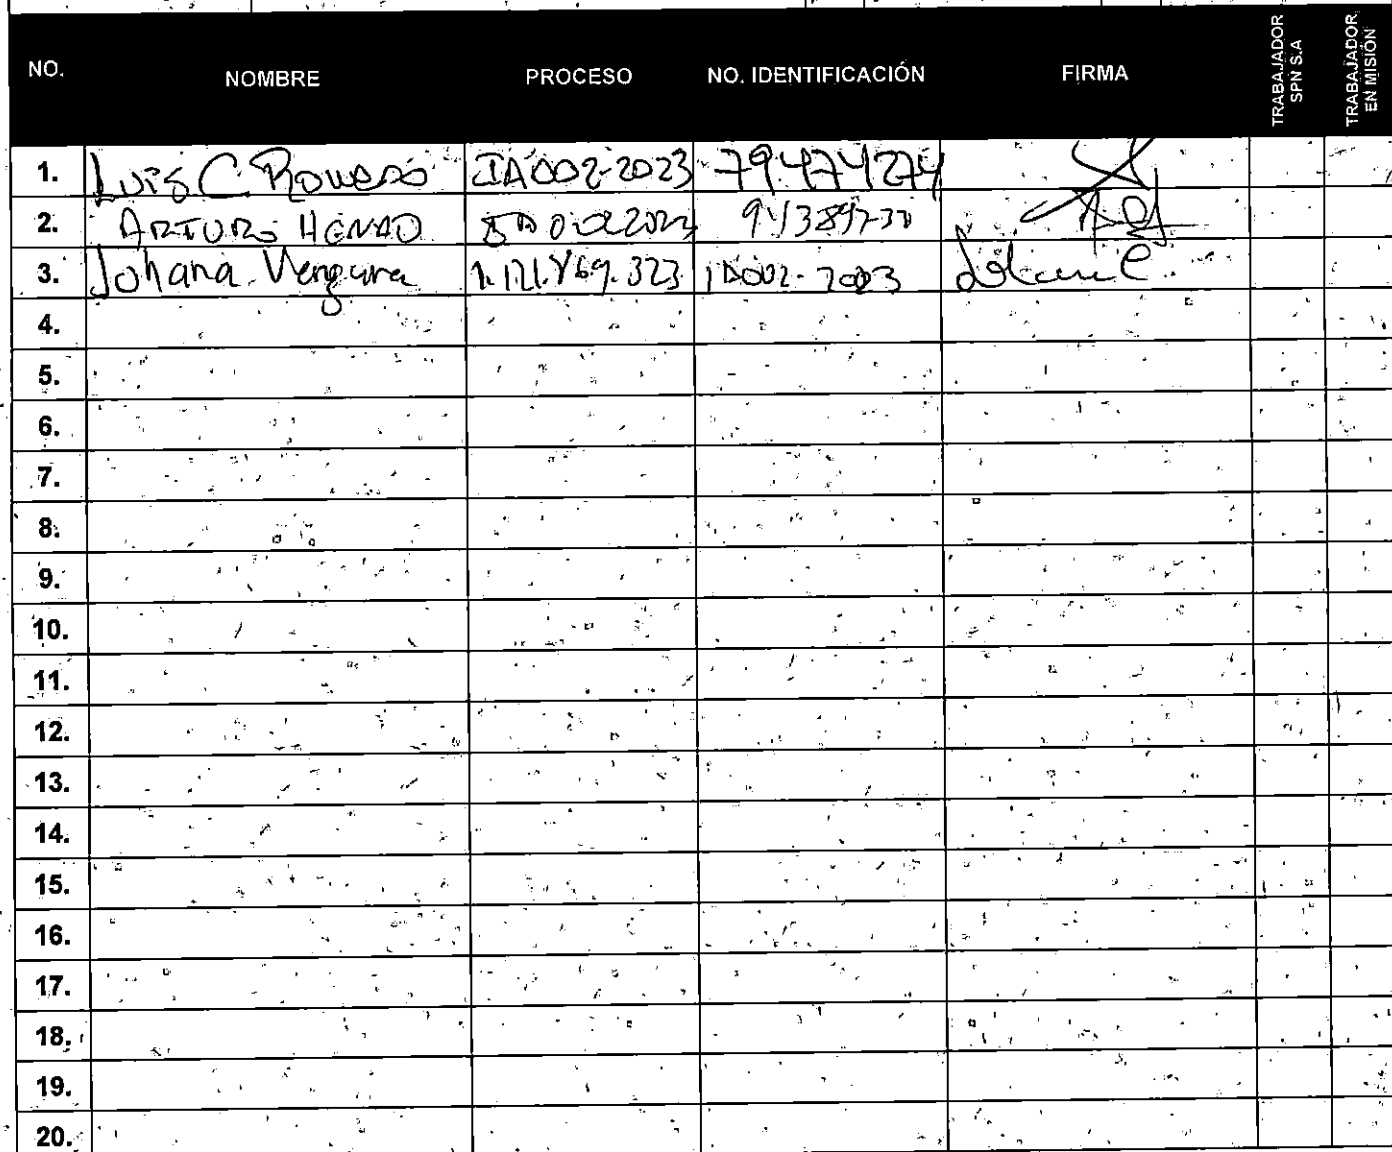 NO. NOMBRE PROCESO NO. IDENTIFICACIÓN FIRMA TRABAJADOR SPN S.A TRABAJADOR EN MISIÓN
1. Luis C Romero IA002-2023 79.474274
2. ARTURO HENAO
3. Johana Vergara 323 IA002-2023
4.
5.
6.
7.
8.
9.
10.
11.
12.
13.
14.
15.
16.
17.
18.
19.
20.